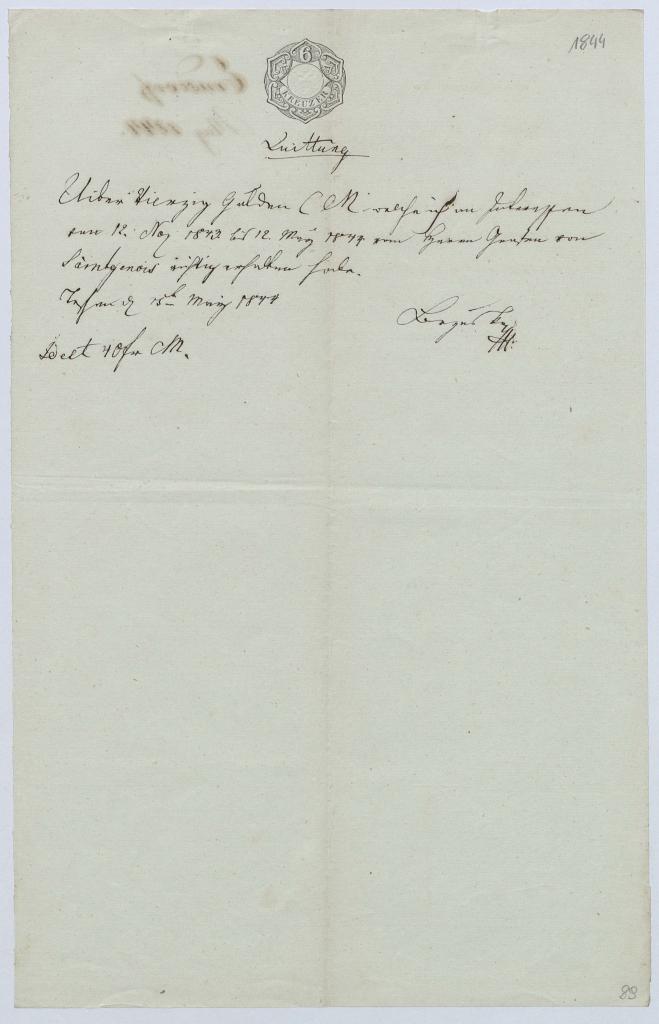 1844
6
KREUZER
Quittung
Uiber Vierzig Gulden CM welche ich an Interessen
vom 12. Nov 1843 bis 12. May 1844 vom Herrn Grafen von
richtig erhalten habe.
15t May 1844
40 fr CM.
89